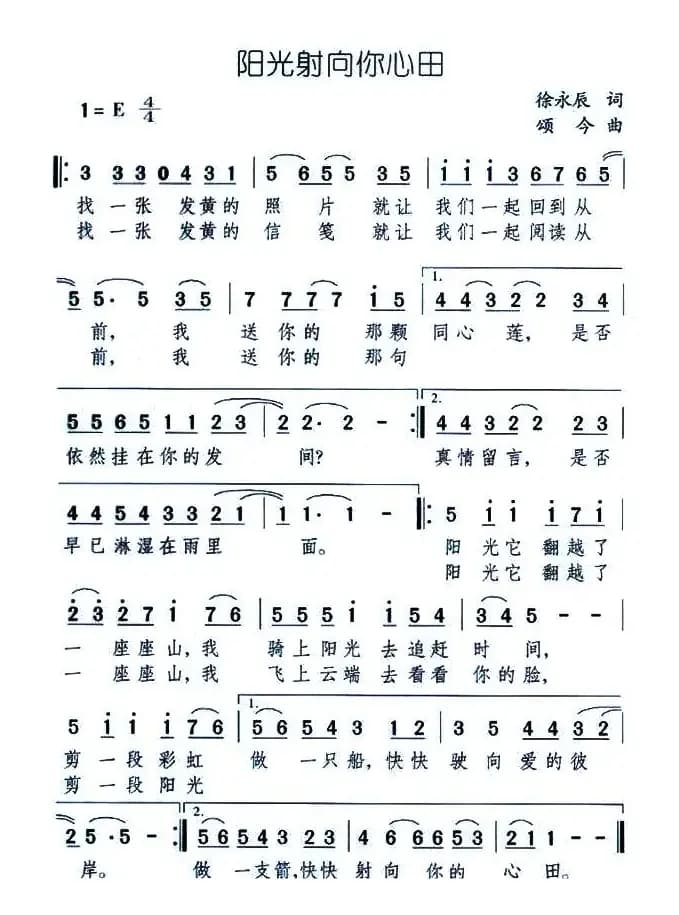 阳光射向你心田
1= E 4/4
徐永辰 词
颂 今 曲
3 3 3 0 4 3 1 | 5 6 5 5 3 5 | i i i 3 6 7 6 5
找一张 发黄的 照 片 就让 我们一起回到从
找一张 发黄的 信 笺 就让 我们一起阅读从
5 5· 5 3 5 | 7 7 7 7 i 5 | 1. 4 4 3 2 2 3 4
前, 我 送你的 那颗 同心 莲, 是否
前, 我 送你的 那句
5 5 6 5 1 1 2 3 | 2 2· 2 - :| 2. 4 4 3 2 2 2 3
依然挂在你的发 间? 真情留言, 是否
4 4 5 4 3 3 2 1 | 1 1· 1 - |: 5 i i i 7 i
早已淋湿在雨里 面。 阳 光它 翻越了
阳 光它 翻越了
2 3 2 7 i 7 6 | 5 5 5 5 i i 5 4 | 3 4 5 5 - -
一 座座山,我 骑上阳光 去追赶 时 间,
一 座座山,我 飞上云端 去看看 你的脸,
5 i i i 7 6 | 1. 5 6 5 4 3 1 2 | 3 5 4 4 3 2
剪 一段 彩虹 做 一只船,快快 驶 向 爱的彼
剪 一段 阳光
2 5· 5 - :| 2. 5 6 5 4 3 2 3 | 4 6 6 6 5 3 | 2 1 1 - -
岸。 做 一支箭,快快 射向 你的 心 田。